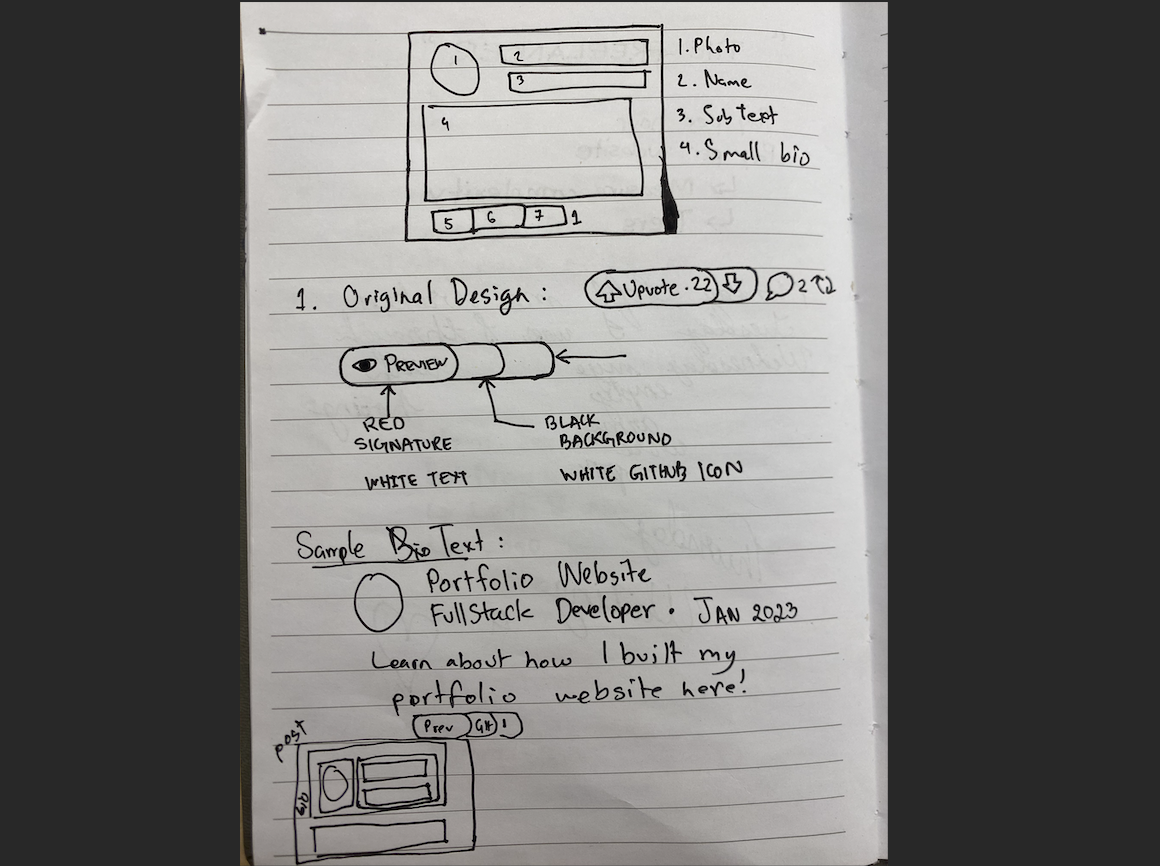 1
2
3
4
5 6 7 1
1. Photo
2. Name
3. SubText
4. Small bio
1. Original Design :
Upvote · 22
2
PREVIEW
RED
SIGNATURE
WHITE TEXT
BLACK
BACKGROUND
WHITE GITHUB ICON
Sample Bio Text :
Portfolio Website
FullStack Developer · JAN 2023
Learn about how I built my
portfolio website here!
Prev GH
post